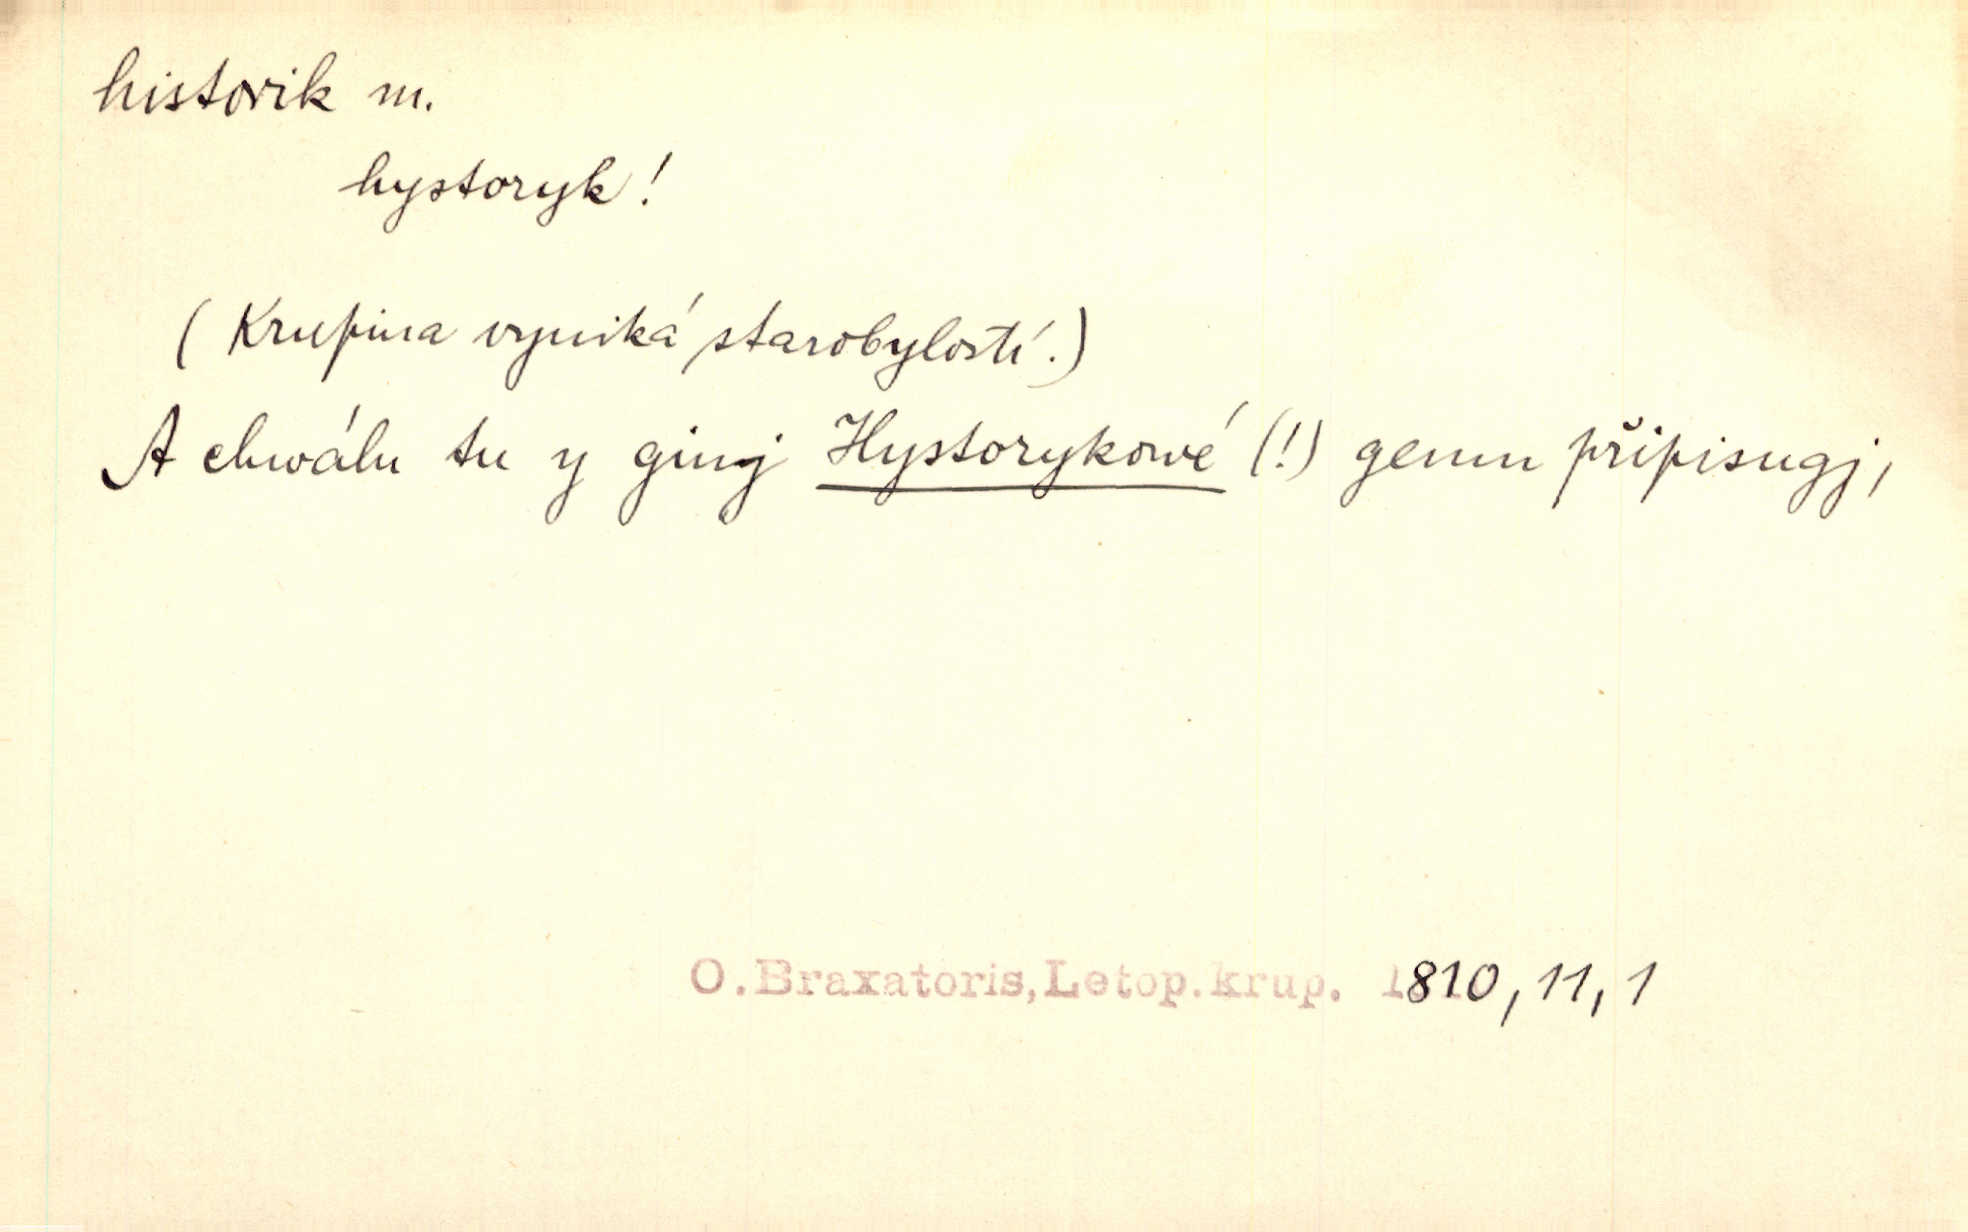 historik m.
hystoryk!
(Krupina vyniká starobylostí.)
A chwálu tu y ginj Hystorykowé (!) gemu připisugj,
O. Braxatoris, Letop. krup. 1810, 11, 1